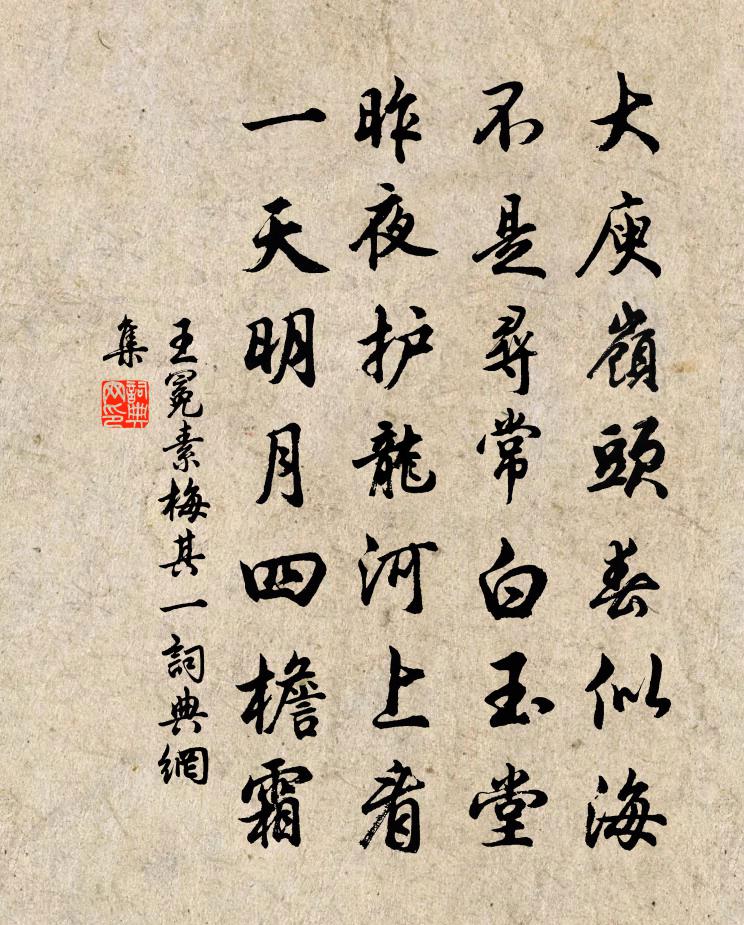 大庾嶺頭春似海
不是尋常白玉堂
昨夜护龍河上看
一天明月四檐霜
王冕素梅其一詞典網
集
詞典
网印